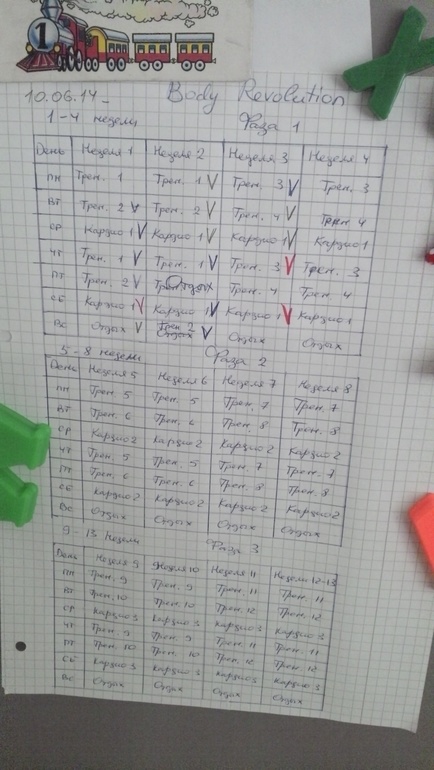 1
10.06.14- Body Revolution
1-4 недели Фаза 1
День Неделя 1 Неделя 2 Неделя 3 Неделя 4
ПН Трен. 1 Трен. 1 V Трен. 3 V Трен. 3
ВТ Трен. 2 V Трен. 2 V Трен. 4 V Трен. 4
СР Кардио 1 V Кардио 1 V Кардио 1 V Кардио 1
ЧТ Трен. 1 V Трен. 1 V Трен. 3 V Трен. 3
ПТ Трен. 2 V Отдых Трен. 4 Трен. 4
СБ Кардио 1 V Кардио 1 V Кардио 1 V Кардио 1
Вс Отдых V Трен 2 V Отдых Отдых
Отдых
5-8 недели Фаза 2
День Неделя 5 Неделя 6 Неделя 7 Неделя 8
ПН Трен. 5 Трен. 5 Трен. 7 Трен. 7
ВТ Трен. 6 Трен. 6 Трен. 8 Трен. 8
СР Кардио 2 Кардио 2 Кардио 2 Кардио 2
ЧТ Трен. 5 Трен. 5 Трен. 7 Трен. 7
ПТ Трен. 6 Трен. 6 Трен. 8 Трен. 8
СБ Кардио 2 Кардио 2 Кардио 2 Кардио 2
Вс Отдых Отдых Отдых Отдых
9-13 Недели Фаза 3
День Неделя 9 Неделя 10 Неделя 11 Недели 12-13
ПН Трен. 9 Трен. 9 Трен. 11 Трен. 11
ВТ Трен. 10 Трен. 10 Трен. 12 Трен. 12
СР Кардио 3 Кардио 3 Кардио 3 Кардио 3
ЧТ Трен. 9 Трен. 9 Трен. 11 Трен. 11
ПТ Трен. 10 Трен. 10 Трен. 12 Трен. 12
СБ Кардио 3 Кардио 3 Кардио 3 Кардио 3
Вс Отдых Отдых Отдых Отдых